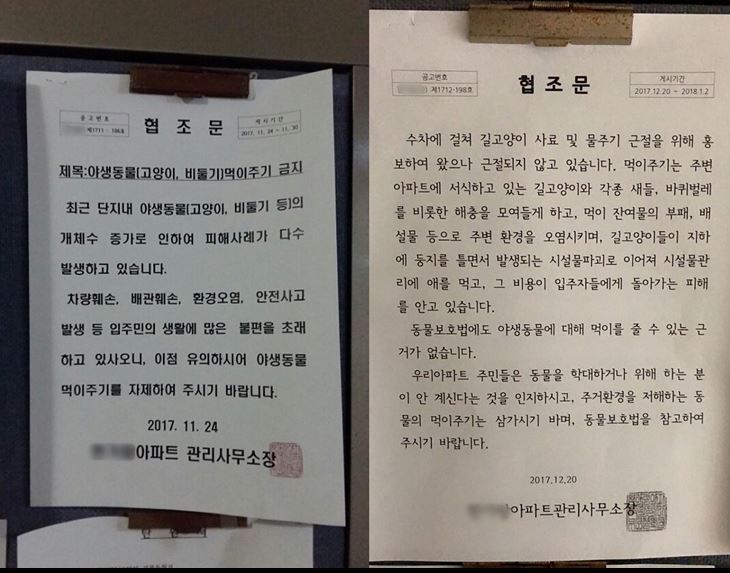 공고번호
제1711-196호
협 조 문
게시기간
2017. 11. 24 ~ 11. 30
제목:야생동물(고양이, 비둘기)먹이주기 금지
최근 단지내 야생동물(고양이, 비둘기 등)의
개체수 증가로 인하여 피해사례가 다수
발생하고 있습니다.
차량훼손, 배관훼손, 환경오염, 안전사고
발생 등 입주민의 생활에 많은 불편을 초래
하고 있사오니, 이점 유의하시어 야생동물
먹이주기를 자제하여 주시기 바랍니다.
2017. 11. 24
아파트 관리사무소장
공고번호
) 제1712-198호
협 조 문
게시기간
2017.12.20 ~ 2018.1.2
수차에 걸쳐 길고양이 사료 및 물주기 근절을 위해 홍
보하여 왔으나 근절되지 않고 있습니다. 먹이주기는 주변
아파트에 서식하고 있는 길고양이와 각종 새들, 바퀴벌레
를 비롯한 해충을 모여들게 하고, 먹이 잔여물의 부패, 배
설물 등으로 주변 환경을 오염시키며, 길고양이들이 지하
에 둥지를 틀면서 발생되는 시설물파괴로 이어져 시설물관
리에 애를 먹고, 그 비용이 입주자들에게 돌아가는 피해
를 안고 있습니다.
동물보호법에도 야생동물에 대해 먹이를 줄 수 있는 근
거가 없습니다.
우리아파트 주민들은 동물을 학대하거나 위해 하는 분
이 안 계신다는 것을 인지하시고, 주거환경을 저해하는 동
물의 먹이주기는 삼가시기 바며, 동물보호법을 참고하여
주시기 바랍니다.
2017.12.20
아파트관리사무소장